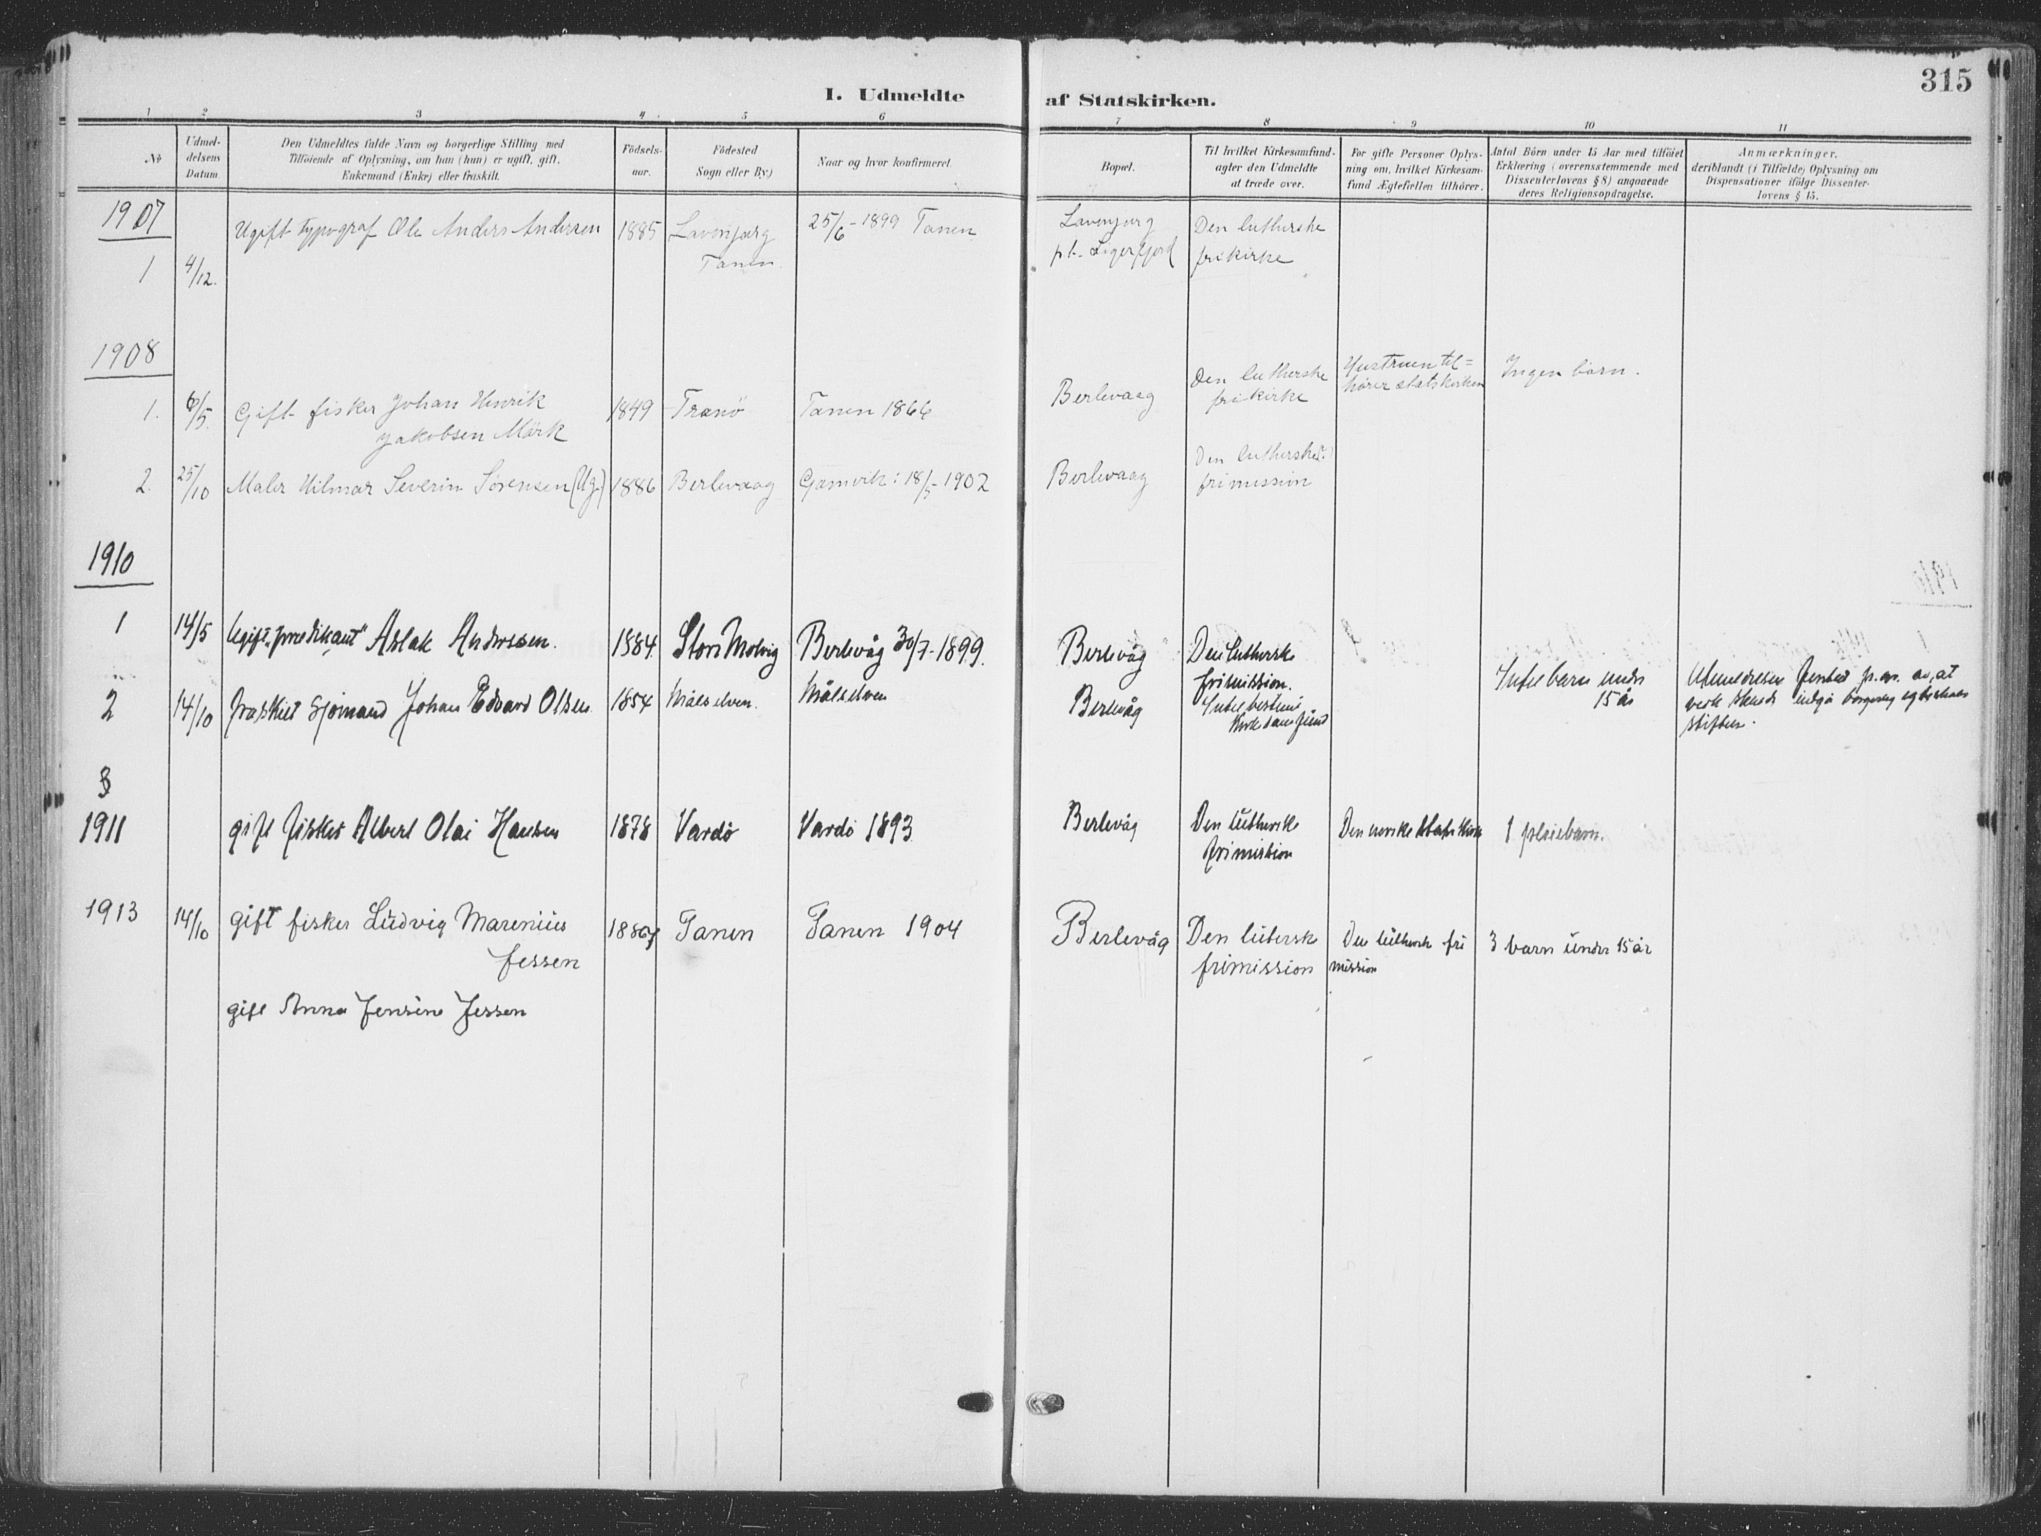 315
I. Udmeldte af Statskirken.
1 2 3 4 5 6 7 8 9 10 11
№
Udmel-
delsens
Datum
Den Udmeldtes fulde Navn og borgerlige Stilling med
Tilföiende af Oplysning, om han (hun) er ugift, gift,
Enkemand (Enke) eller fraskilt.
Födsels-
aar.
Födested
Sogn eller By)
Naar og hvor konfirmeret
Bopæl.
Til hvilket Kirkesamfund-
agter den Udmeldte
at træde over.
For gifte Personer Oplys-
ning om, hvilket Kirkesam-
fund Ægtefællen tilhörer.
Antal Börn under 15 Aar med tilföiet
Erklæring (overensstemmende med
Dissenterlovens § 8) angaaende
deres Religionsopdragelse.
Anmærkninger,
deriblandt (i Tilfælde) Oplysning om
Dispensationer ifölge Dissenter-
lovens § 15.
1907
1
4/12.
Ugift typograf Ole Anders Andersen
1885
Lavonjarg
Tanen.
25/6 - 1899 Tanen
Lavonjarg
pt.
Den lutherske
frikirke
1908
1.
6/5.
Gift fisker Johan Henrik
Jakobsen Mörk
1849
Tranö
Tanen 1866
Berlevaag
Den lutherske
frikirke
Hustruen til=
hörer statskirken
Ingen börn.
2.
25/10
Maler Hilmar Severin Sörensen (Ug.)
1886
Berlevaag
Gamvik: 18/5 - 1902
Berlevaag
Den lutherske
frimission
1910
1
14/5
Ugift "prædikant" Aslak Anderssen.
1884.
Stors Molvig
Berlevåg 30/7 - 1899.
Berlevåg
Den lutherske
frimission.
2
14/10
fraskilt Sjømand Johan Edvard Olsen
1854
Målselven.
Målselven
Berlevåg
Intet bestemt
Kirkesamfund
Intet barn under
15 år
3
1911
gift fisker Albert Olai Hansen
1878
Vardö
Vardö 1893
Berlevåg
Den lutherske
frimission
Den norske statskirke
1 pleiebarn.
1913
14/10
gift fisker Ludvig Marenius
Jessen
Tanen
Tanen 1904
Berlevåg
Den lutersk
frimission
Den luthersk fri
mission
3 barn under 15 år
gift Anna Jensine Jessen